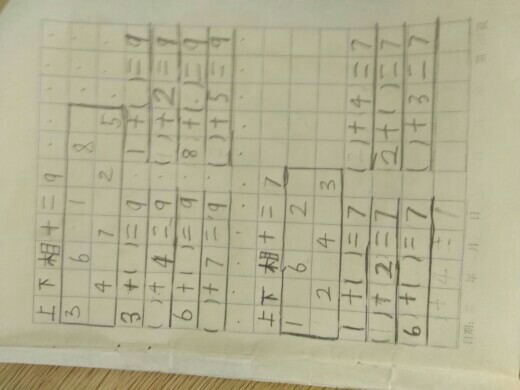 上下相+=9
3 6 1 8
4 7 2 5
3+( )=9 1+( )=9
( )+4=9 ( )+2=9
6+( )=9 8+( )=9
( )+7=9 ( )+5=9
上下相+=7
1 6 2
2 4 3
1+( )=7 ( )+4=7
( )+2=7 2+( )=7
(6)+( )=7 ( )+3=7
( )+4=7
日期: 年 月 日